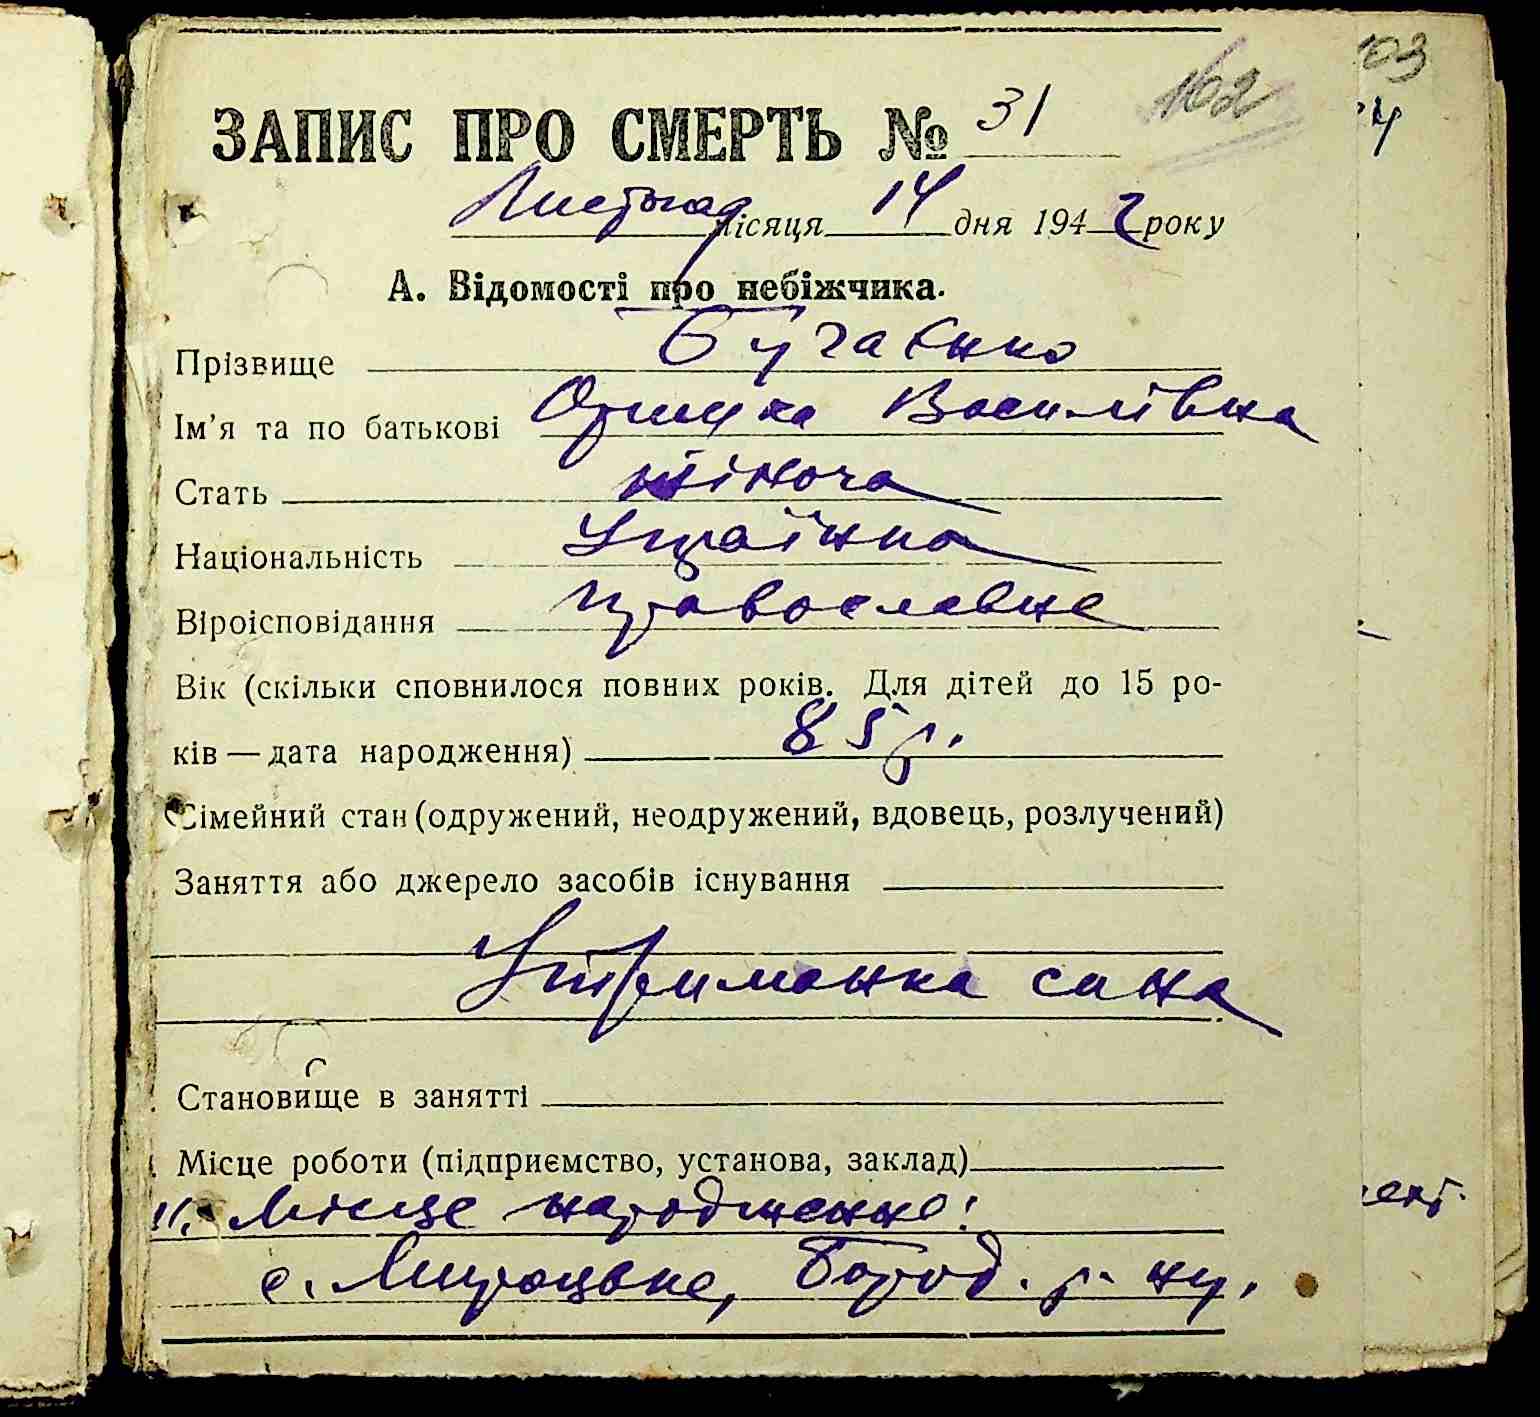 103
162
ЗАПИС ПРО СМЕРТЬ № 31
Листопад місяця 14 дня 1942 року
А. Відомості про небіжчика.
Прізвище Бугаєнко
Ім'я та по батькові Оришка Василівна
Стать жіноча
Національність Українка
Віроісповідання православне
Вік (скільки сповнилося повних років. Для дітей до 15 ро-
ків — дата народження) 85 р.
Сімейний стан (одружений, неодружений, вдовець, розлучений)
Заняття або джерело засобів існування
Утриманка сина
Становище в занятті
Місце роботи (підприємство, установа, заклад)
11. Місце народження:
с. Мироцьке, Бород. р-ну.